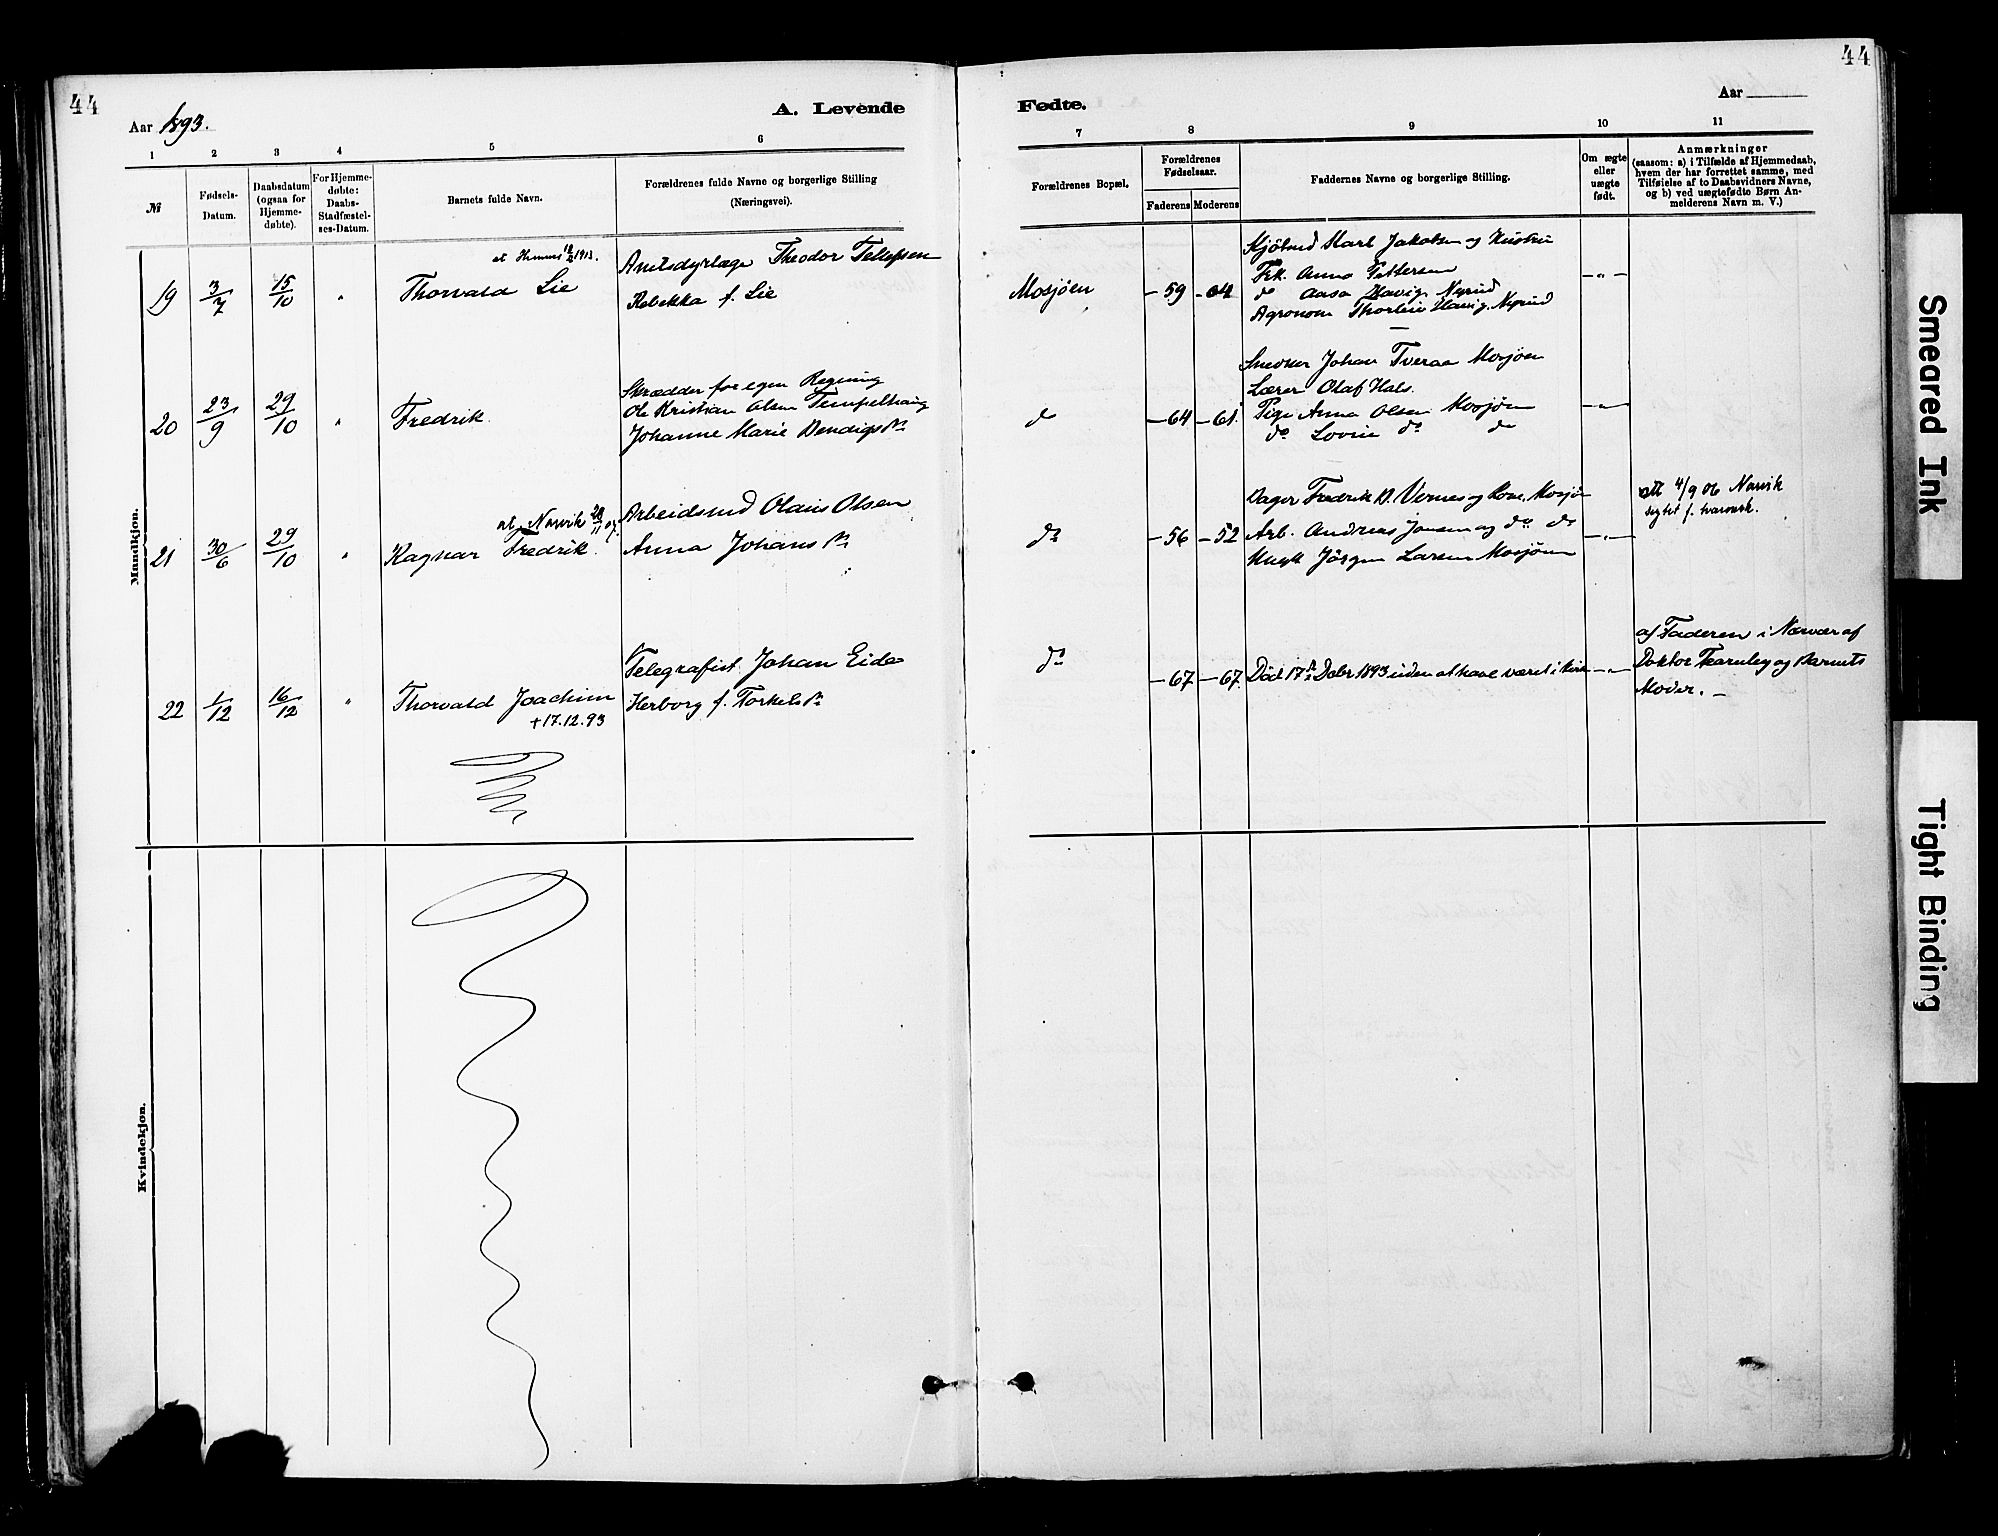 44
44
Aar 1893.
A. Levende
Fødte.
Aar
1 2 3 4 5 6 7 8 9 10 11
№
Fødsels-
Datum.
Daabsdatum
(ogsaa for
Hjemme-
døbte).
For Hjemme-
døbte:
Daabs-
Stadfæstel-
ses-Datum.
Barnets fulde Navn.
Forældrenes fulde Navne og borgerlige Stilling
(Næringsvei).
Forældrenes Bopæl.
Forældrenes
Fødselsaar.
Faderens Moderens
Faddernes Navne og borgerlige Stilling.
Om ægte
eller
uægte
født.
Anmærkninger
(saasom: a) i Tilfælde af Hjemmedaab,
hvem der har forrettet samme, med
Tilføielse af to Daabsvidners Navne,
og b) ved uægtefødte Børn An-
melderens Navn m. V.)
Mandkjøn.
19 3/7 15/10 "
1913.
Thorvald Lie
Amtsdyrlæge Theodor Tellefsen
Rebekka f. Lie
Mosjøen
-59 -64
Karl Jakobsen og Hustru
Frk. Anna Pettersen
do Aasa
Agronom
-"-
20 23/9 29/10 "
Fredrik.
Skrædder for egen Regning
Ole Kristian Olsen Tempelhaug
Johanne Marie Bendigsdr
do
-64 -61.
Snedker Johan Tveraa Mosjøen
Lærer Olaf Hals.
Pige Anna Olsen Mosjøen
do Lovise do do
-"-
21 30/6 29/10 "
at. Narvik
Ragnar Fredrik.
Arbeidsmd Olaus Olsen
Anna Johansdr
do
-56 -52
Fredrik B. Vernes og Kone, Mosjøn
Arb. Andreas Jonsen og do do
Jörgen Larsen Mosjøen
-"-
att 4/9 06 Narvik
22 1/12 16/12 "
Thorvald Joachim
+17.12.93
Telegrafist Johan Eide
Herborg f. Torkelsdr
do
-67 -67.
Død 17de Debr. 1893 uden at have været i Kirke
-"-
af Faderen i Nærvær af
Doktor Thernley og Barnets
Moder. -
Kvindekjøn.
Smeared Ink
Tight Binding